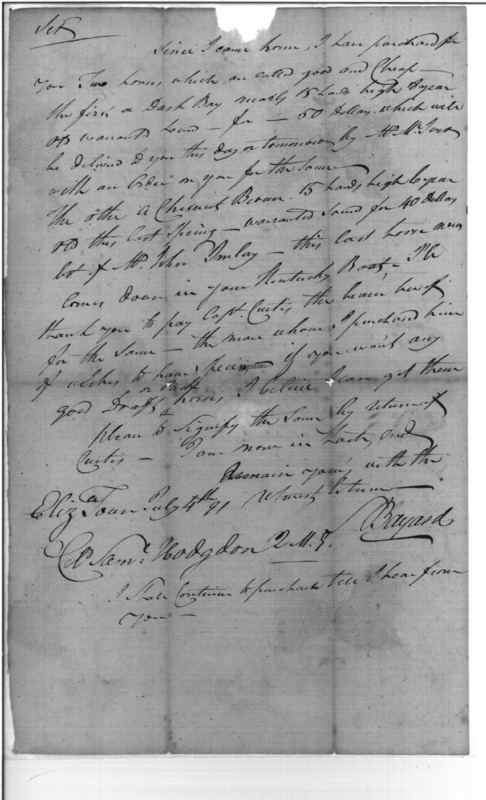 Sir
Since I came home, I have purchased for
you Two horses which are called good and Cheap —
the first a Dark Bay nearly 15 hands high 8 year
old warranted sound — for — 50 Dollars, which will
be delivered to you this day or tomorrow by Mr
with an Order on you for the same
the other a Chesnut Brown 15 hands high 6 year
old this last Spring — warranted sound for 40 Dollars
bot of Mr John Imlay — this last horse
comes down in your Kentucky Boat, I'll
thank you to pay Capt. Curtis the bearer hereof
for the same — the man whom I purchased him
of wishes to have specie — if you want any
good Draft or horses I believe I can get them
please to signify the same by return of
Curtis — I am now in haste, and
Remain yours with the
Eliz Town July 4th 91 utmost Esteem
Bayard
Col Saml. Hodgdon Q.M.G.
I shall Continue to purchase till I hear from
you —